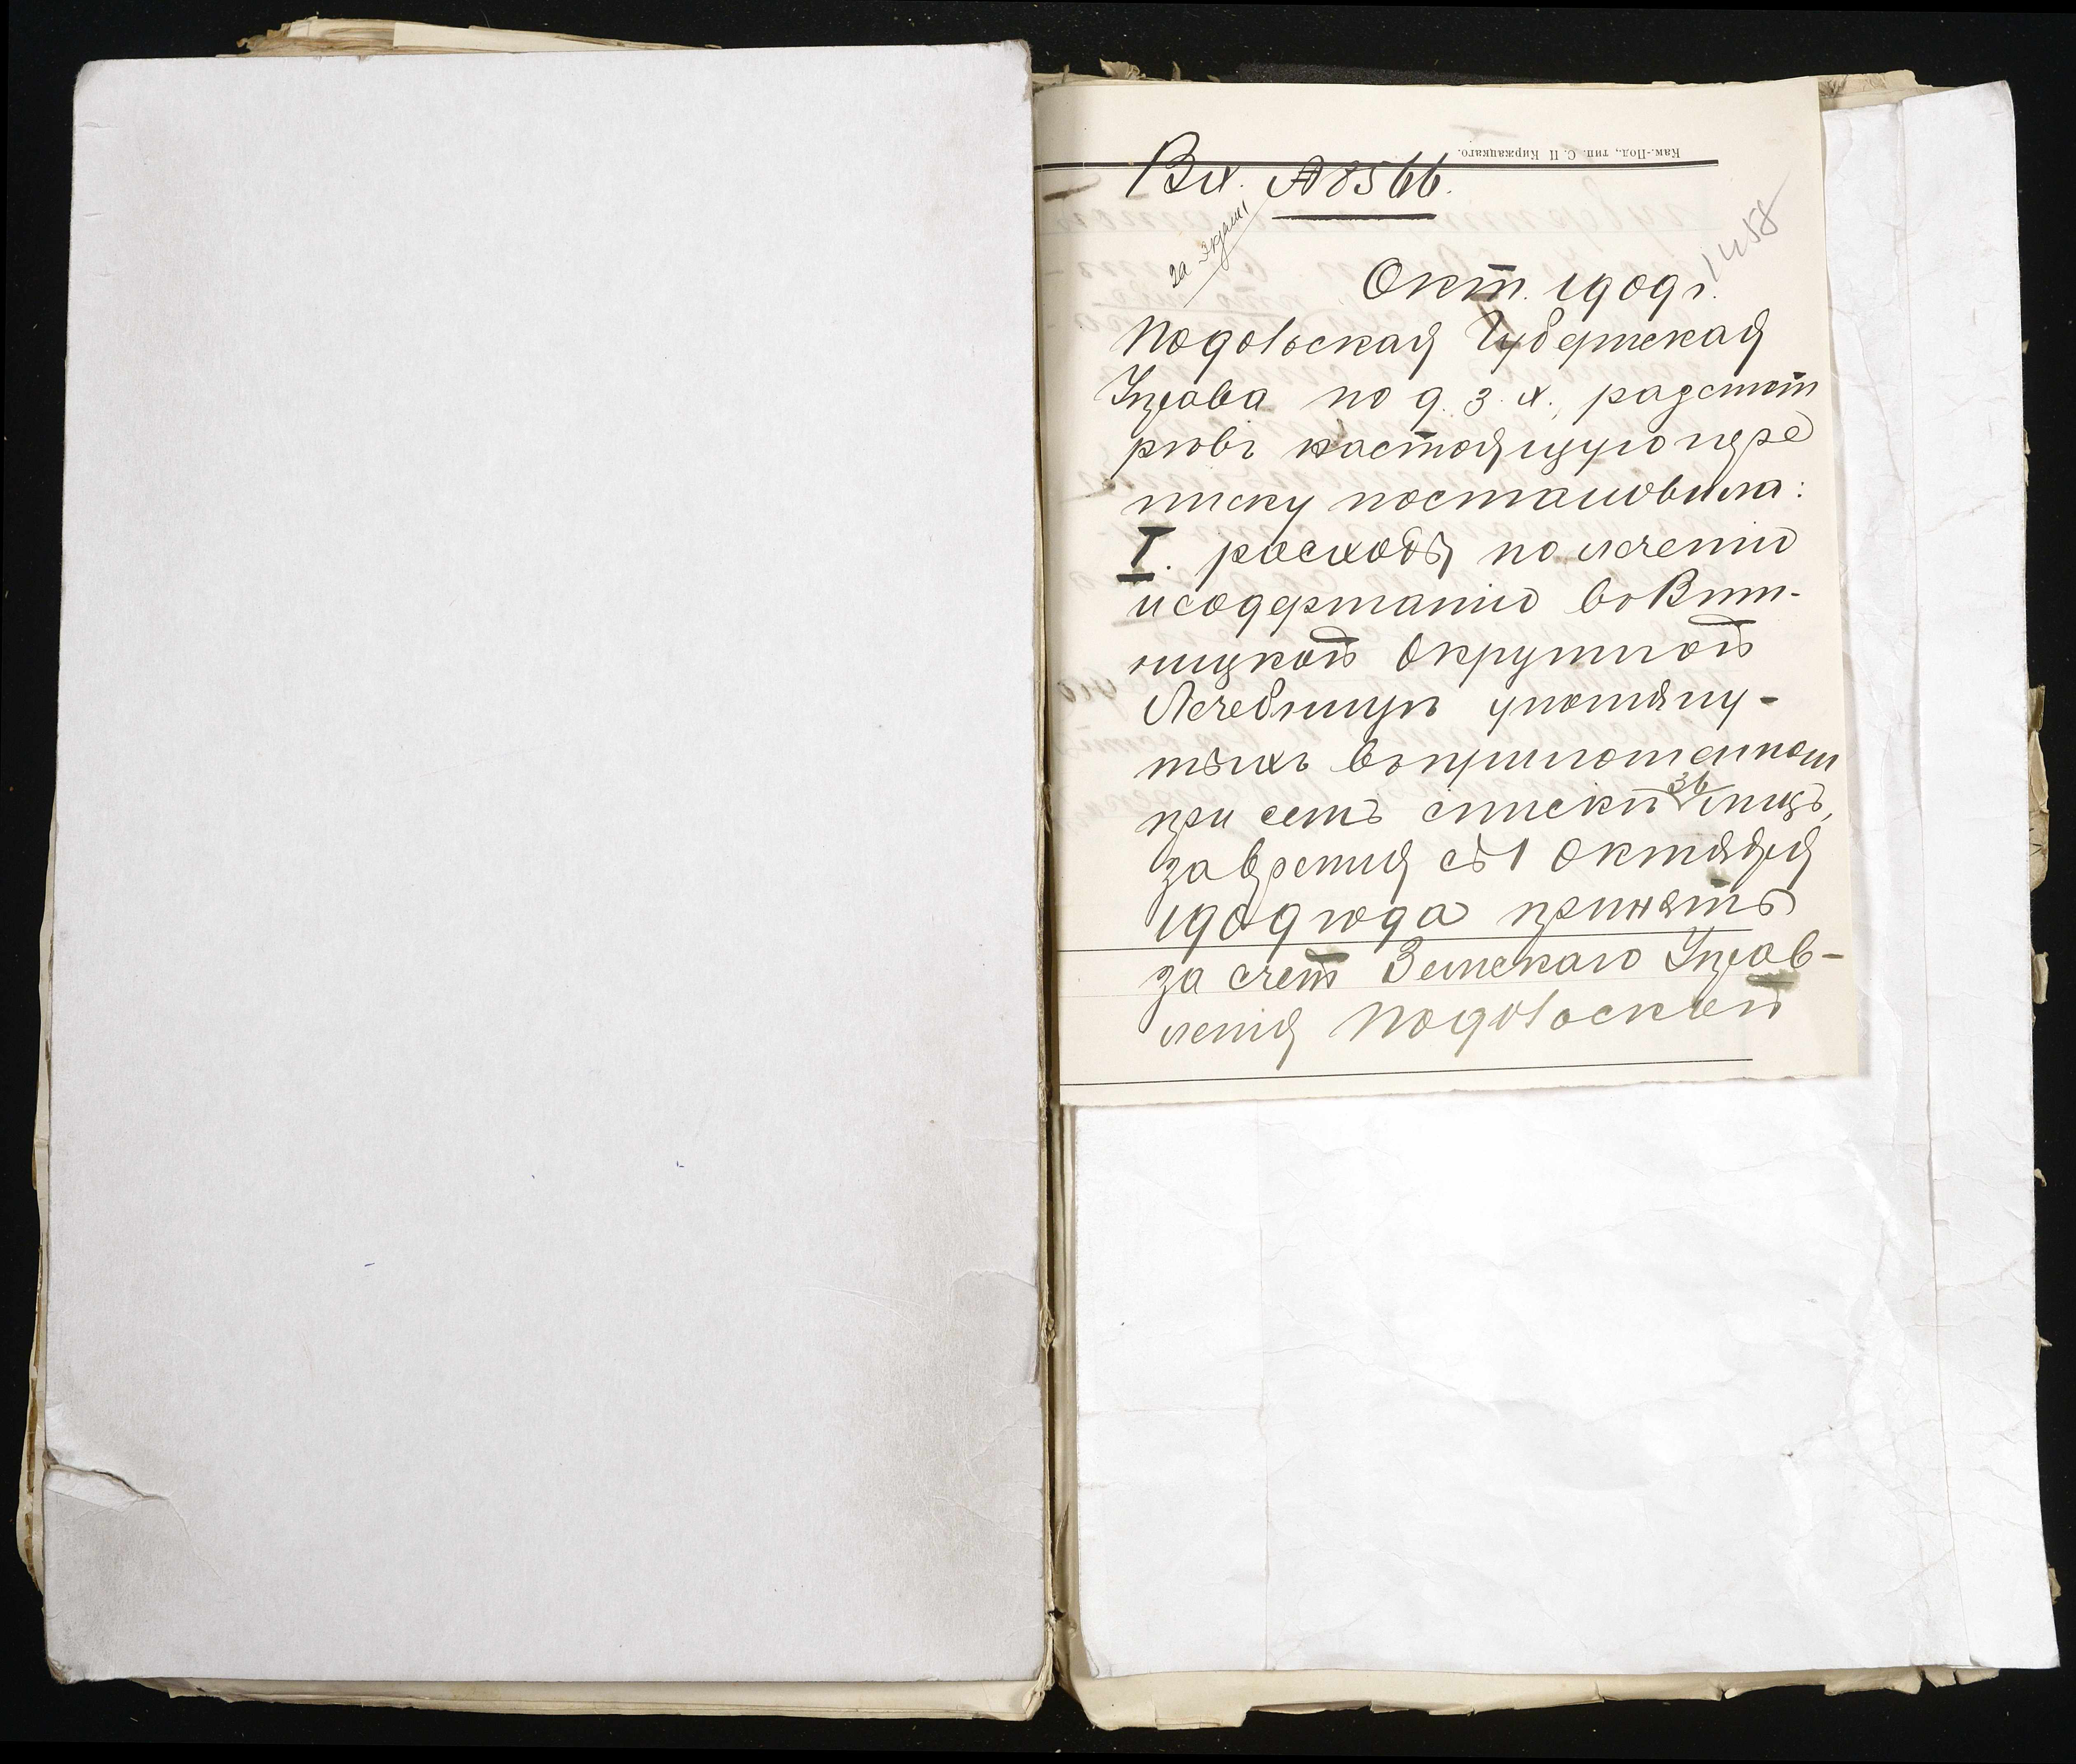 Кам.-Под., тип. С. П Киржацкаго.
Вх. № 8566.
1458
Окт. 1909 г.
Подольская Губернская
Управа по д. з. х., разсмот
ревъ настоящую пере
писку постановила:
I. расходы по лечению
и содержанию въ Вин-
ницкой Окружной
Лечебнице упомяну-
тыхъ въ приложенном
при семъ списке 36 лицъ,
за время съ 1 Октября
1909 года принять
за счетъ Земскаго Управ-
ления Подольской